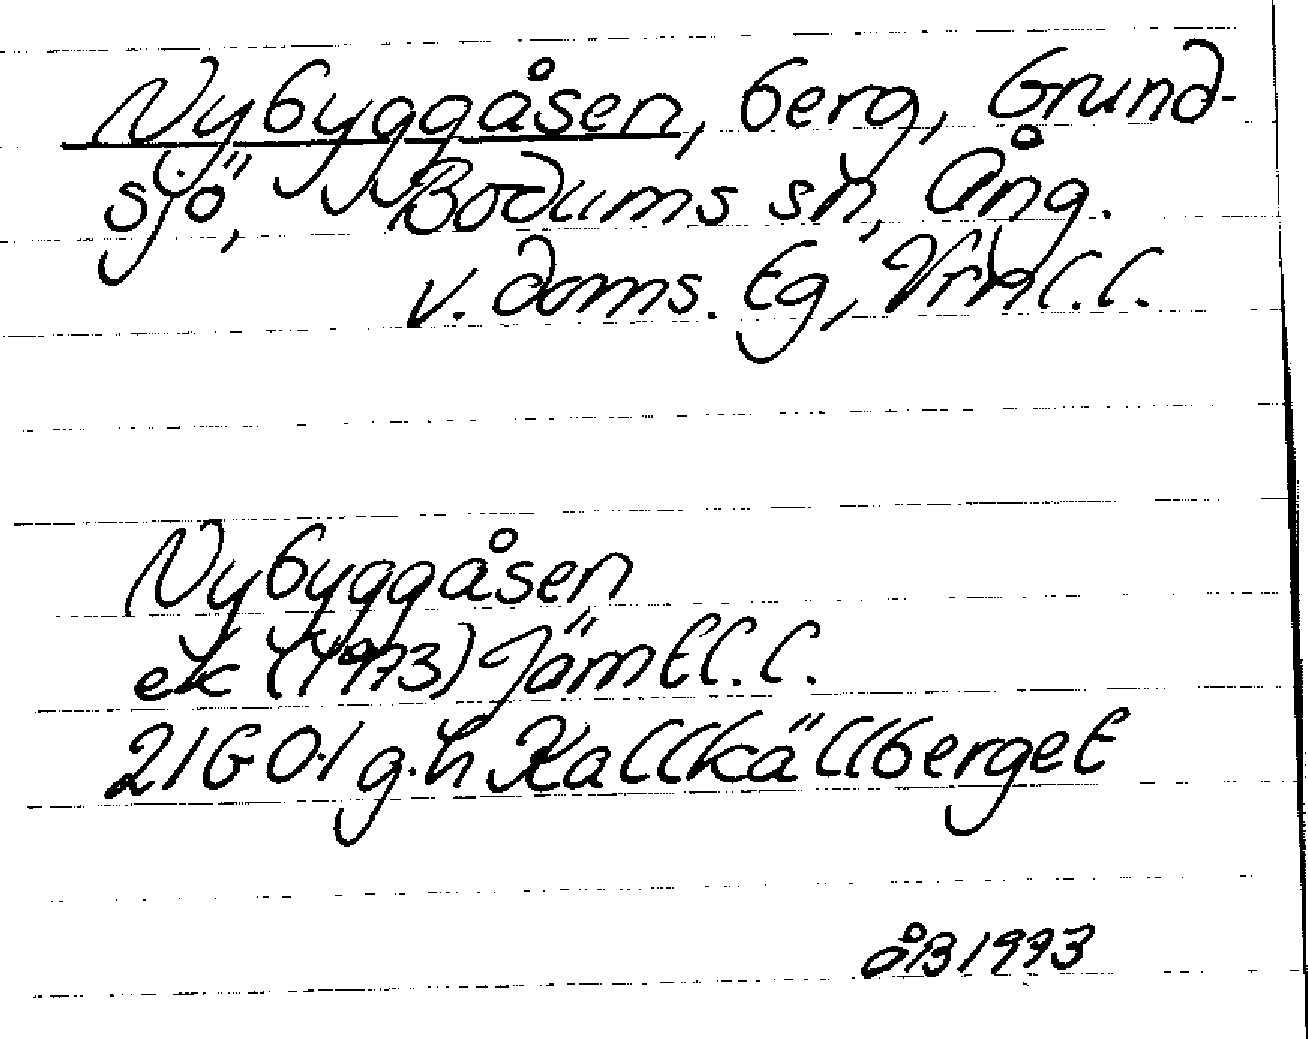 Nybyggåsen, berg, Grund-
sjö, Bodums sn, Ång.
v. doms. Eg,
Nybyggåsen
ek (1973) Jämtl. l.
21G 0-1 g.h Kallkällberget
ÅB 1993